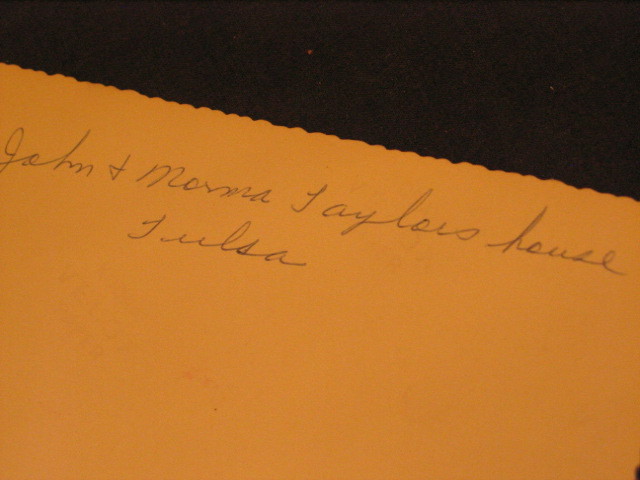 John & Norma Taylors house
Tulsa